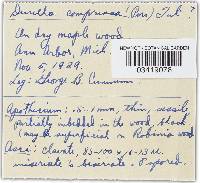 Durella compressa (Pers) Tul.
On dry maple wood
Ann Arbor, Mich.
Nov 5, 1929.
Leg: George B. Cummins
NEW YORK BOTANICAL GARDEN
03413078
Apothecium: .5-1 mm, thin, sessile
partially imbedded in the wood, black
(may be superficial on Robinia wood
Asci: clavate, 85-100 x 11-13 u.
uniseriate to biseriate. 8 spored.